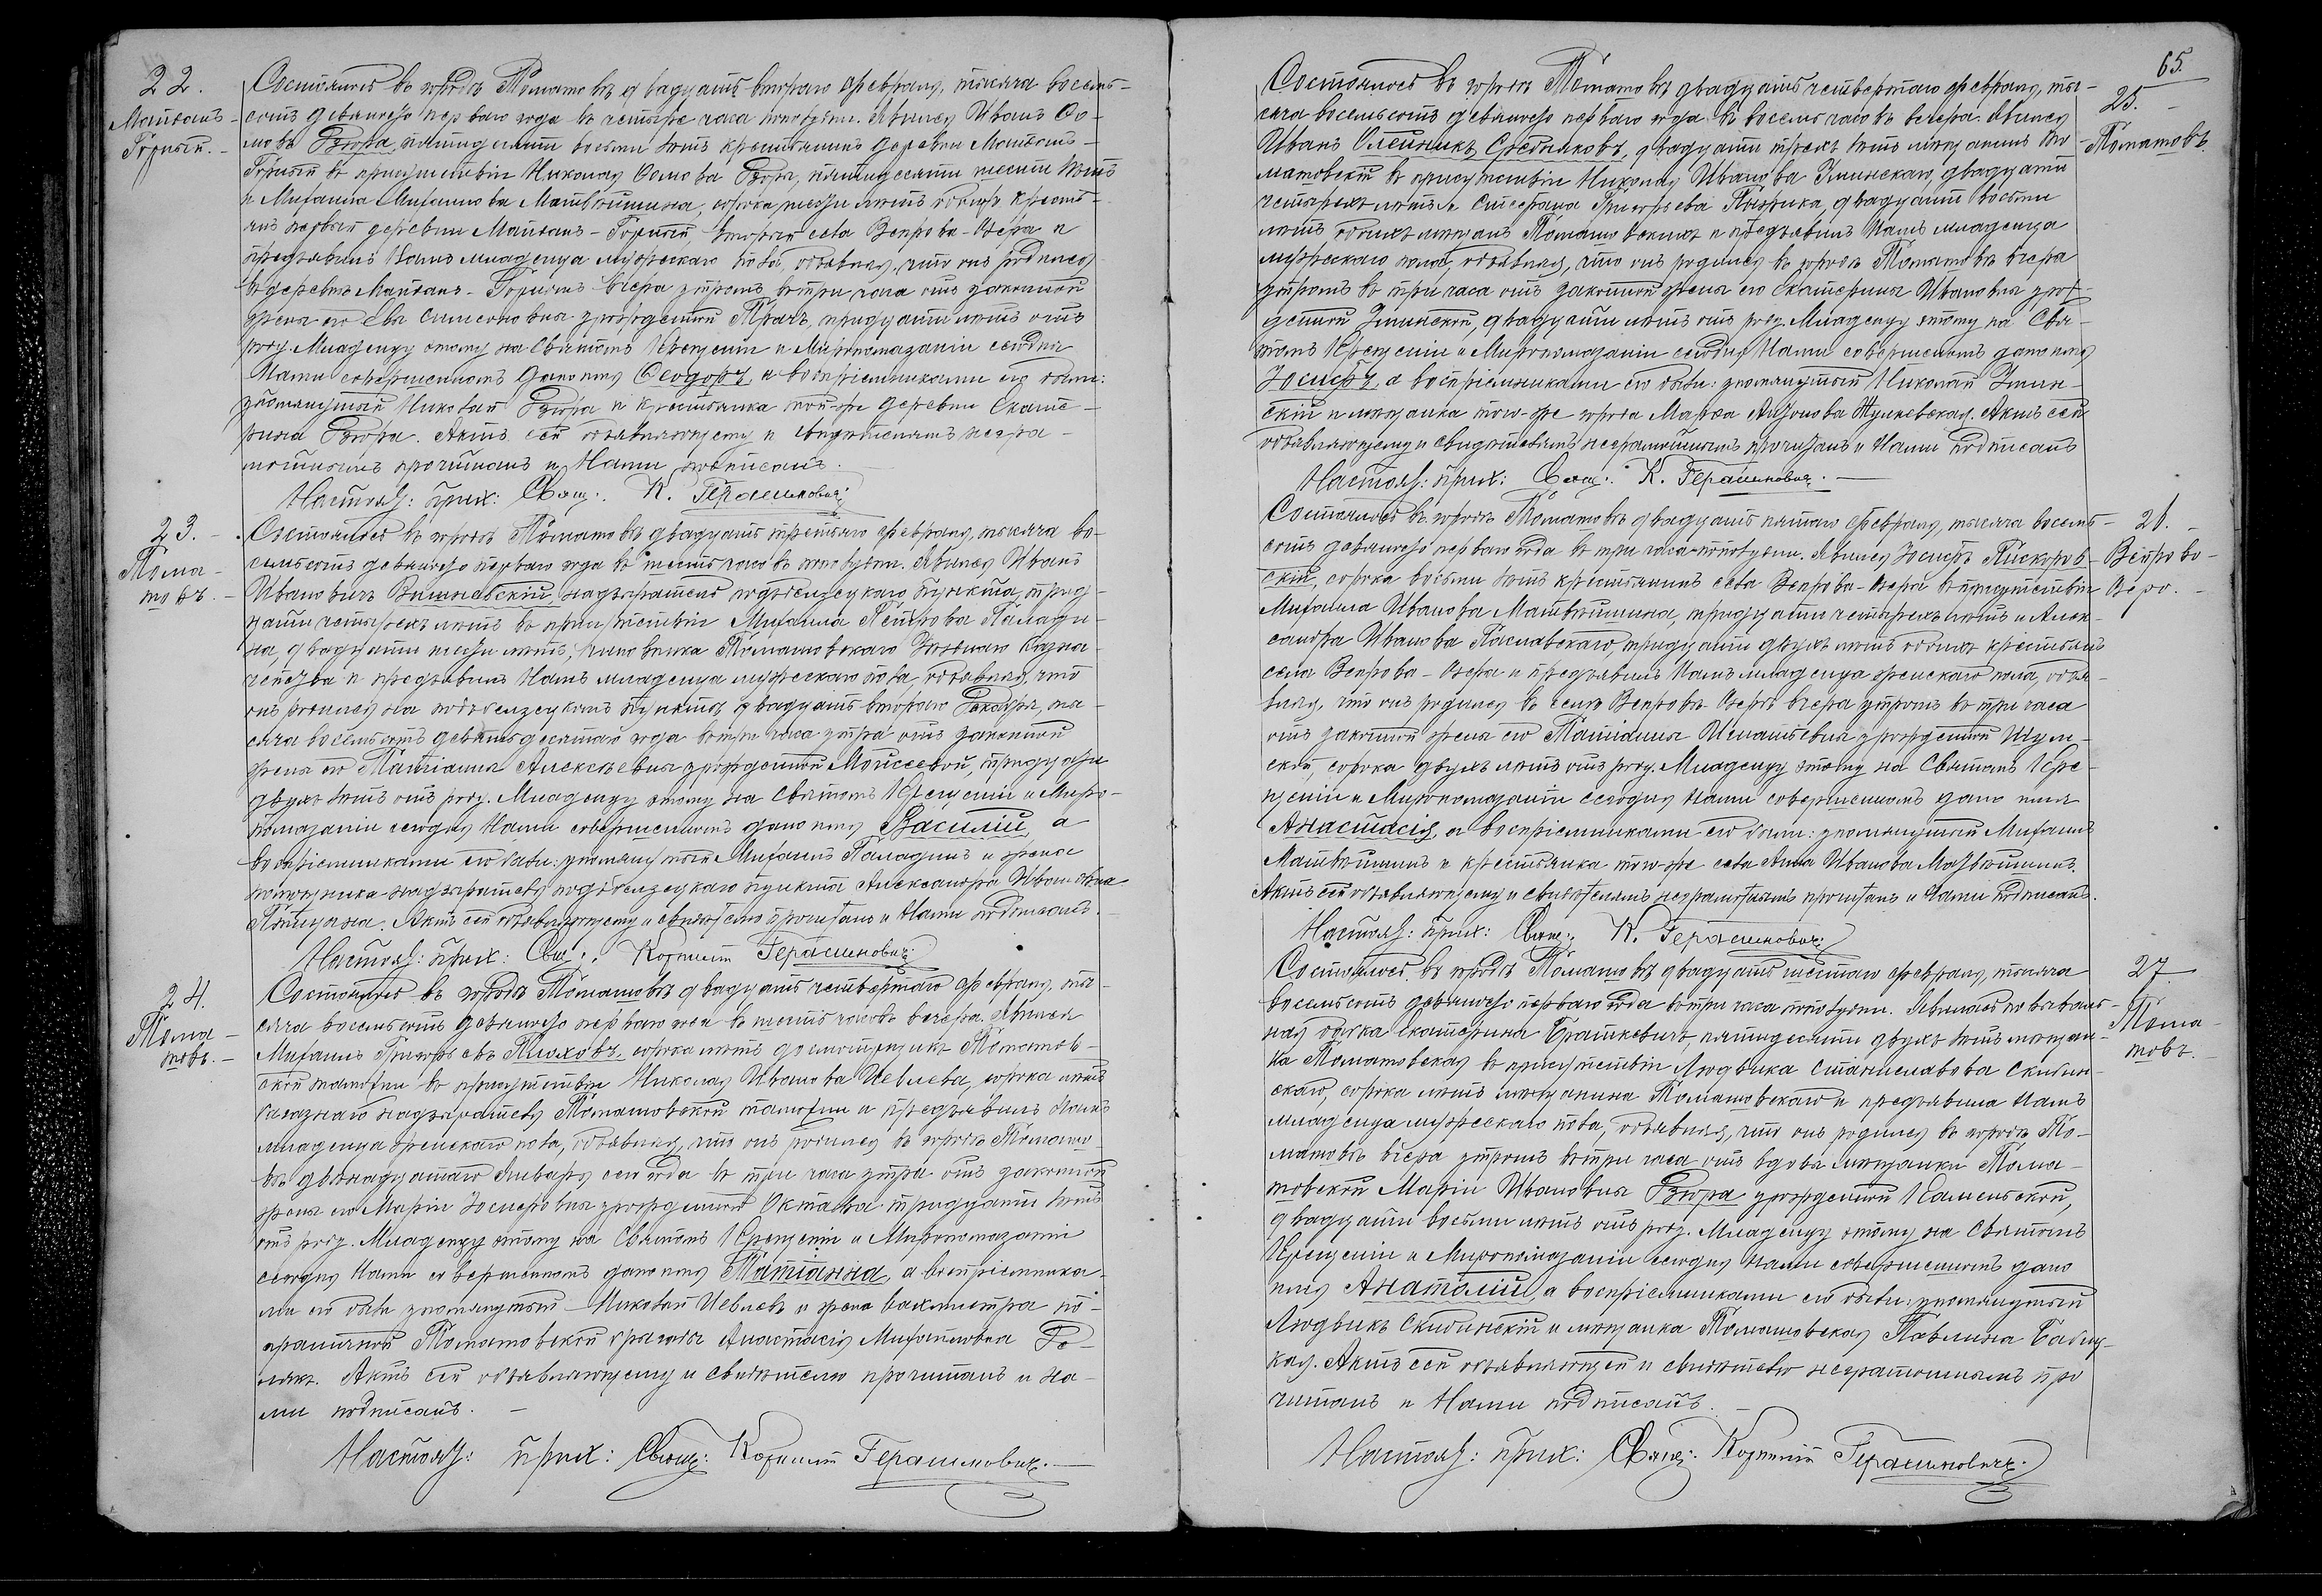 22.
Майданъ-
Горный.-
Состоялось въ городѣ Томашовѣ двадцать втораго февраля, тысяча восемь-
сотъ девяносто перваго года въ четыре часа пополудни. Явился Иванъ Ѳо-
мовъ Бзюра, пятидесяти восьми лѣтъ крестьянинъ деревни Майданъ-
Горный въ присутствіи Николая Ѳомова Бзюры, пятидесяти шести лѣтъ
и Михаила Михаилова Матвѣишина, сорока лѣтъ обоихъ кресть-
янъ первый деревни Майданъ-Горный, вторый села Вепрова-Озера и
предъявилъ Намъ младенца мужескаго пола, объявляя, что онъ родился
въ деревнѣ Майданъ-Горномъ вчера утромъ въ три часа отъ законной
жены его Евы Симеоновны урожденной Ткачъ, тридцати лѣтъ отъ
роду. Младенцу этому на Святомъ Крещеніи и Мѵропомазаніи сегодня
Нами совершенномъ дано имя Ѳеодоръ, а воспріемниками его были:
упомянутый Николай Бзюра и крестьянка той-же деревни Екате-
рина Бзюра. Актъ сей объявляющему и свидѣтелямъ негра-
мотнымъ прочитанъ и Нами подписанъ.
Настоят: прих: Свящ: К. Герасимовичъ
23.-
Тома-
шовъ.-
Состоялось въ городѣ Томашовѣ двадцать третьяго февраля, тысяча во-
семьсотъ девяносто перваго года въ шесть часовъ пополудни. Явился Иванъ
Ивановичъ Вишневскій, надзиратель пункта, трид-
цати четырехъ лѣтъ въ присутствіи Михаила Петрова Палади-
на, двадцати лѣтъ, чиновника Томашовскаго Уѣзднаго Казна-
чейства и предъявилъ Намъ младенца мужескаго пола, объявляя, что
онъ родился на пунктѣ двадцать втораго Декабря, ты-
сяча восемьсотъ девятьдесятаго года въ три часа утра отъ законной
жены его Татіанны Алексѣевны урожденной Моисеевой, тридцати
двухъ лѣтъ отъ роду. Младенцу этому на Святомъ Крещеніи и Мѵро-
помазаніи сегодня Нами совершенномъ дано имя Василій, а
воспріемниками его были: упомянутый Михаилъ Паладинъ и жена
помощника надзирателя пункта Александра Ивановна
Актъ сей объявляющему и свидѣтелю прочитанъ и Нами подписанъ.
Настоят: прих: Свящ: Корнилій Герасимовичъ
24.
Тома-
шовъ.-
Состоялось въ городѣ Томашовѣ двадцать четвертаго февраля, ты-
сяча восемьсотъ девяносто перваго года въ шесть часовъ вечера. Явился
Михаилъ Григорьевъ Плюховъ, сорока лѣтъ досмотрщикъ Томашов-
ской таможни въ присутствіи Николая Иванова Иевлева, сорока лѣтъ
надзирателя Томашовской таможни и предъявилъ Намъ
младенца женскаго пола, объявляя, что онъ родился въ городѣ Томашо-
вѣ двѣнадцатаго Января сего года въ три часа утра отъ законной
жены его Маріи Іосифовны урожденной Октава тридцати лѣтъ
отъ роду. Младенцу этому на Святомъ Крещеніи и Мѵропомазаніи
сегодня Нами совершенномъ дано имя Татіанна, а воспріемника-
ми его были упомянутый Николай Иевлевъ и жена вахмистра по-
граничной Томашовской бригады Анастасія Михайловна Го-
лякъ. Актъ сей объявляющему и свидѣтелю прочитанъ и На-
ми подписанъ.-
Настоят: прих: Свящ: Корнилій Герасимовичъ.-
65.
25.-
Томашовъ.
Состоялось въ городѣ Томашовѣ двадцать четвертаго февраля, ты-
сяча восемьсотъ девяносто перваго года въ восемь часовъ вечера. Явился
Иванъ Олейникъ Средняковъ, двадцати трехъ лѣтъ мѣщанинъ То-
машовскій въ присутствіи Николая Иванова Зминскаго, двадцати
четырехъ лѣтъ и Стефана Григорьева двадцати восьми
лѣтъ обоихъ мѣщанъ Томашовскихъ и предъявилъ Намъ младенца
мужескаго пола, объявляя, что онъ родился въ городѣ Томашовѣ вчера
утромъ въ три часа отъ законной жены его Екатерины Ивановны урож-
денной Зминской, двадцати лѣтъ отъ роду. Младенцу этому на Свя-
томъ Крещеніи и Мѵропомазаніи сегодня Нами совершенномъ дано имя
Іосифъ, а воспріемниками его были: упомянутый Николай Змин-
скій и мѣщанка того-же города Марѳа Антонова Жулкевская. Актъ сей
объявляющему и свидѣтелямъ неграмотнымъ прочитанъ и Нами подписанъ
Настоят: прих: Свящ: К. Герасимовичъ.-
26.-
Вепрово-
Озеро.-
Состоялось въ городѣ Томашовѣ двадцать пятаго февраля, тысяча восемь-
сотъ девяносто перваго года въ три часа пополудни. Явился Іосифъ Пискоров-
скій, сорока восьми лѣтъ крестьянинъ села Вепрова-Озера въ присутствіи
Михаила Иванова Матвѣишина, тридцати четырехъ лѣтъ и Алек-
сандра Иванова Паславскаго, тридцати двухъ лѣтъ обоихъ крестьянъ
села Вепрова-Озера и предъявилъ Намъ младенца женскаго пола, объя-
вляя, что онъ родился въ селѣ Вепровѣ-Озерѣ вчера утромъ въ три часа
отъ законной жены его Татіанны Игнатьевны урожденной Шум-
ской, сорока двухъ лѣтъ отъ роду. Младенцу этому на Святомъ Кре-
щеніи и Мѵропомазаніи сегодня Нами совершенномъ дано имя
Анастасія, а воспріемниками его были: упомянутый Михаилъ
Матвѣишинъ и крестьянка того-же села Анна Иванова Матвѣишинъ.
Актъ сей объявляющему и свидѣтелямъ неграмотнымъ прочитанъ и Нами подписанъ.
Настоят: прих: Свящ: К. Герасимовичъ
27
Тома-
шовъ.-
Состоялось въ городѣ Томашовѣ двадцать шестаго февраля, тысяча
восемьсотъ девяносто перваго года въ три часа пополудни. Явилась повиваль-
ная бабка Екатерина Брашкевичъ, пятидесяти двухъ лѣтъ мѣщан-
ка Томашовская въ присутствіи Людвика Станиславова Скибин-
скаго, сорока лѣтъ мѣщанина Томашовскаго и предъявила Намъ
младенца мужескаго пола, объявляя, что онъ родился въ городѣ То-
машовѣ вчера утромъ въ три часа отъ вдовы мѣщанки Тома-
шовской Маріи Ивановны Бзюра урожденной Каменьской,
двадцати восьми лѣтъ отъ роду. Младенцу этому на Святомъ
Крещеніи и Мѵропомазаніи сегодня Нами совершенномъ дано
имя Анатолій, а воспріемниками его были: упомянутый
Людвикъ Скибинскій и мѣщанка Томашовская Павлина
Актъ сей объявляющей и свидѣтелю неграмотнымъ про
читанъ и Нами подписанъ.-
Настоят: прих: Свящ: Корнилій Герасимовичъ.